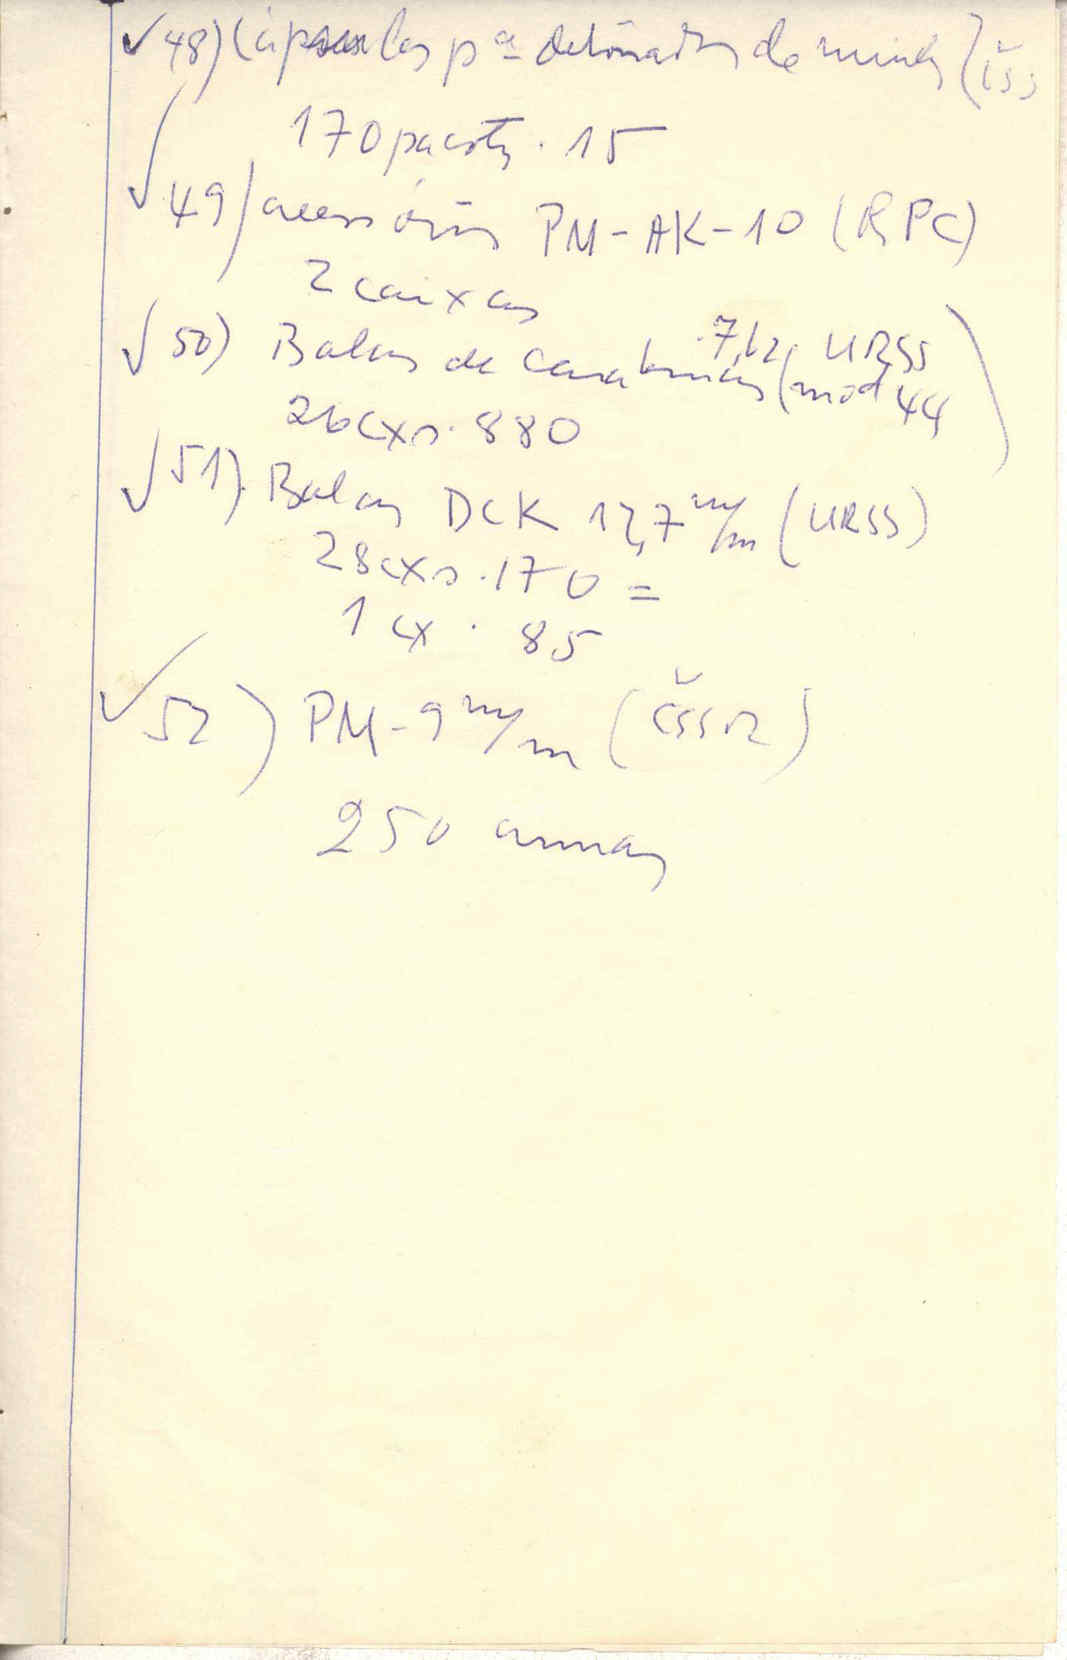 ✓ 48) Cápsulas pª detonador de minas (čss
170 pacots · 15
✓ 49) acessórios PM-AK-10 (RPC)
2 caixas
✓ 50) Balas de carabinas (mod 44 7,62 URSS)
26 cxs · 880
✓ 51) Balas DCK 12,7 m/m (URSS)
28 cxs · 170 =
1 cx · 85
✓ 52) PM-9 m/m (čssr)
250 armas